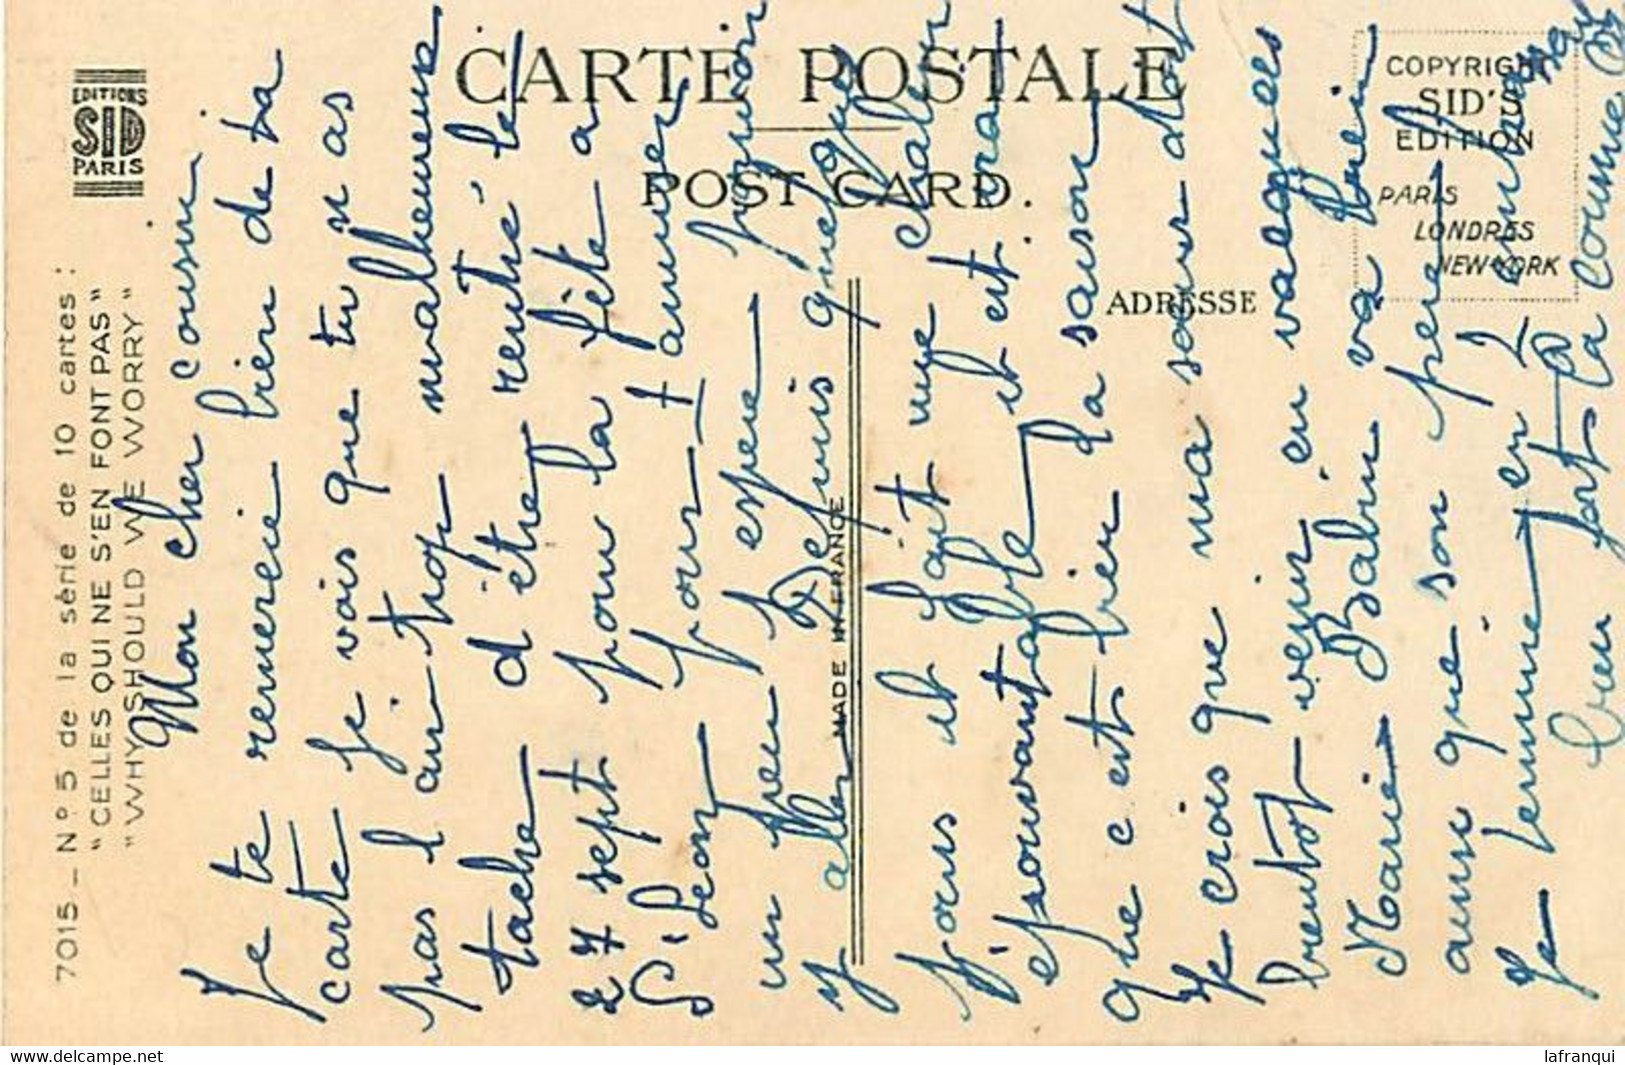 CARTE POSTALE
POST CARD.
ADRESSE
COPYRIGHT
SID'S
EDITION
PARIS
LONDRES
NEW-YORK
EDITIONS
SID
PARIS
7015 – N° 5 de la série de 10 cartes :
"CELLES QUI NE S'EN FONT PAS"
"WHY SHOULD WE WORRY"
MADE IN FRANCE
Mon cher cousin
Je te remercie bien de ta
carte je vois que tu n as
pas l air trop malheureux
tache d'être rentré le
27 sept pour la fête a
St Léon pour t amuser
un peu j espere pouvoir
y aller Depuis quelque
jours il fait une chaleur
épouvantable il est vrai
que c est bien la saison
Je crois que ma soeur doit
bientot venir en vacances
Marie Babin va bien
aussi que son pere
Je termine en
bien fort Ta cousine
lafranqui